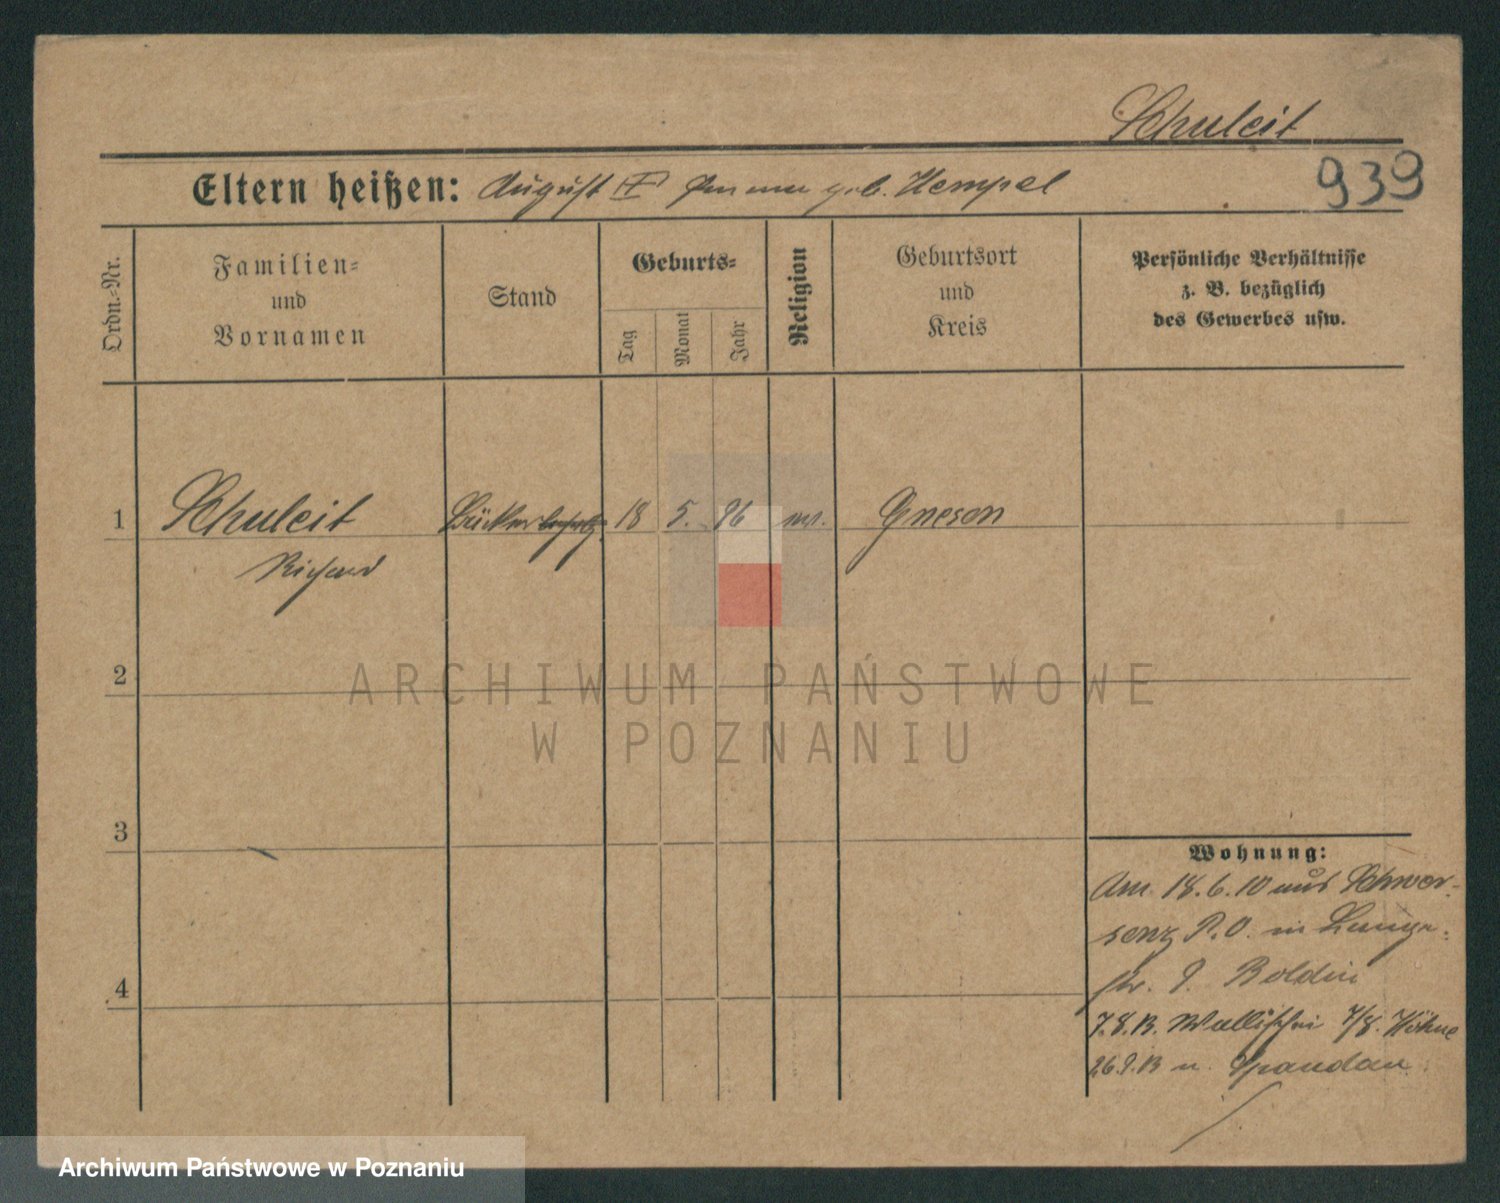 Schuleit
939
Eltern heißen: August geb. Hempel
Ordn.-Nr.
Familien-
und
Vornamen
Stand
Geburts-
Tag
Monat
Jahr
Religion
Geburtsort
und
Kreis
Persönliche Verhältnisse
z. B. bezüglich
des Gewerbes usw.
1 Schuleit Bäcker 18 5. 96 Gnesen
Richard
2
3
4
Wohnung:
Am 18.6.10 aus Schwer-
senz P.O. in Lange-
str. 9. Boldin
7.8.13. Wallischei 7/8. Höhne
26.9.13 n. Spandau
ARCHIWUM PAŃSTWOWE
W POZNANIU
Archiwum Państwowe w Poznaniu